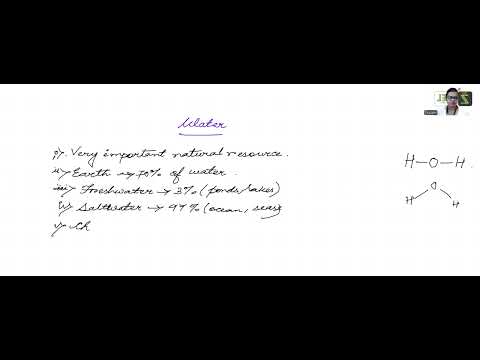 Water
i). Very important natural resource.
ii) Earth → 70% of water.
iii) Freshwater → 3% (ponds/lakes)
iv) Saltwater → 97% (ocean, seas)
v) Ch
H-O-H
O
H H